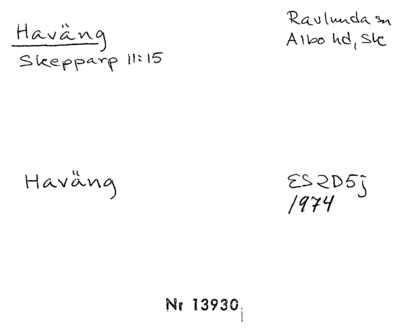 Haväng
Ravlunda sn
Skepparp 11:15
Albo hd, Sk
Haväng
ES2D5j
1974
Nr 13930